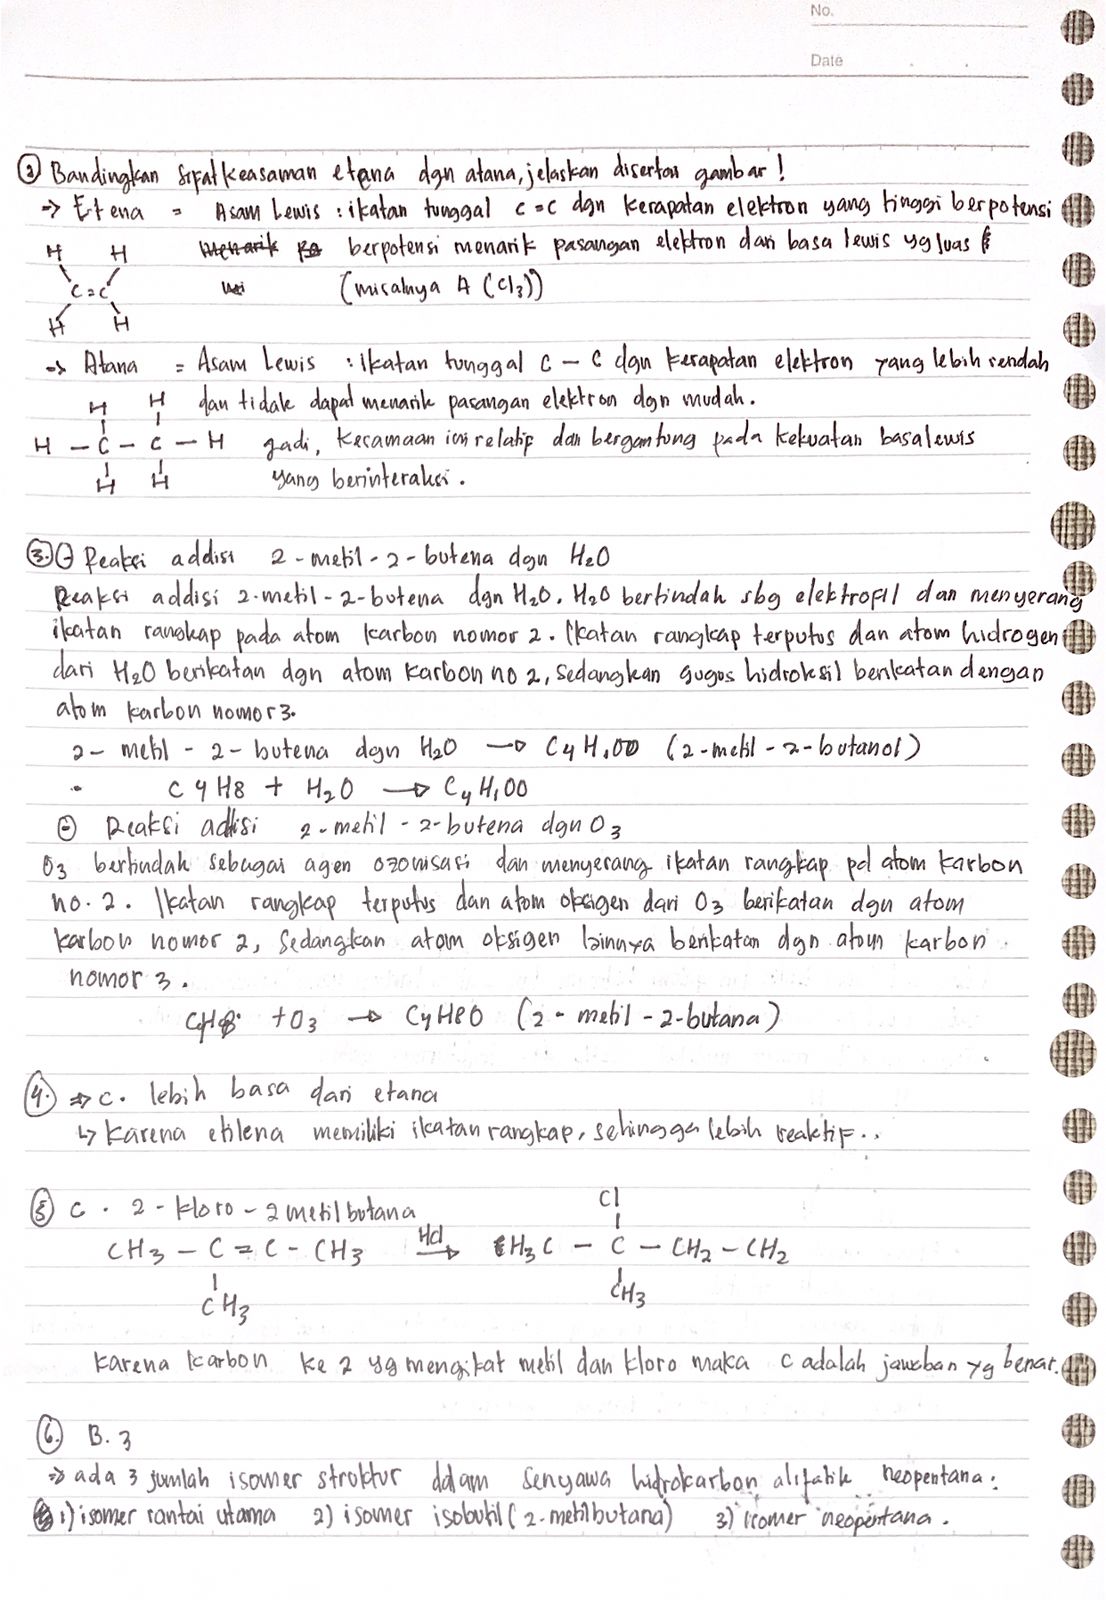 No.
Date
② Bandingkan sifat keasaman etena dgn atana, jelaskan disertai gambar !
→ Etena = Asam Lewis : ikatan tunggal C=C dgn kerapatan elektron yang tinggi berpotensi
berpotensi menarik pasangan elektron dari basa lewis yg luas
(misalnya A (Cl3))
H H
C=C
H H
→ Atana = Asam Lewis : ikatan tunggal C – C dgn kerapatan elektron yang lebih rendah
dan tidak dapat menarik pasangan elektron dgn mudah.
H H
H – C – C – H
H H
jadi, kesamaan ini relatif dan bergantung pada kekuatan basa lewis
yang berinteraksi.
③.⊖ Reaksi addisi 2-metil-2-butena dgn H2O
Reaksi addisi 2-metil-2-butena dgn H2O. H2O bertindah sbg elektrofil dan menyerang
ikatan rangkap pada atom karbon nomor 2. Ikatan rangkap terputus dan atom hidrogen
dari H2O berikatan dgn atom karbon no 2, sedangkan gugus hidroksil berikatan dengan
atom karbon nomor 3.
2-metil-2-butena dgn H2O → C4H10O (2-metil-2-butanol)
C4H8 + H2O → C4H10O
⊖ Reaksi addisi 2-metil-2-butena dgn O3
O3 bertindah sebagai agen ozonisasi dan menyerang ikatan rangkap pd atom karbon
no. 2. Ikatan rangkap terputus dan atom oksigen dari O3 berikatan dgn atom
karbon nomor 2, sedangkan atom oksigen lainnya berikatan dgn atom karbon
nomor 3.
C4H8 + O3 → C4H8O (2-metil-2-butana)
④. ⇒ c. lebih basa dari etana
↳ karena etilena memiliki ikatan rangkap, sehingga lebih reaktif..
⑤ C. 2-kloro-2 metilbutana
Cl
CH3 – C = C – CH3 HCl → H3C – C – CH2 – CH2
CH3 CH3
karena karbon ke 2 yg mengikat metil dan kloro maka c adalah jawaban yg benar.
⑥. B. 3
⇒ ada 3 jumlah isomer struktur dalam senyawa hidrokarbon alifatik neopentana :
1) isomer rantai utama 2) isomer isobutil (2-metilbutana) 3) isomer neopentana.